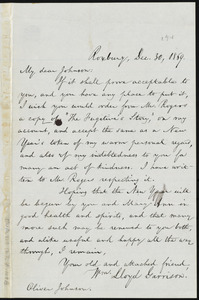 Roxbury, Dec. 30, 1869.
My dear Johnson:
If it shall prove acceptable to
you, and you have any place to put it,
I wish you would order from Mr. Rogers
a copy of "The Fugitive's Story," on my
account, and accept the same as a New
Year's token of my warm personal regard,
and also of my indebtedness to you for
many an act of kindness. I have writ-
ten to Mr. Rogers respecting it.
Hoping that the New Year will
be begun by you and Mary Ann in
good health and spirits, and that many,
more such may be renewed to you both,
and alike useful and happy all the way
through, I remain,
Your old and attached friend,
Wm. Lloyd Garrison.
Oliver Johnson.